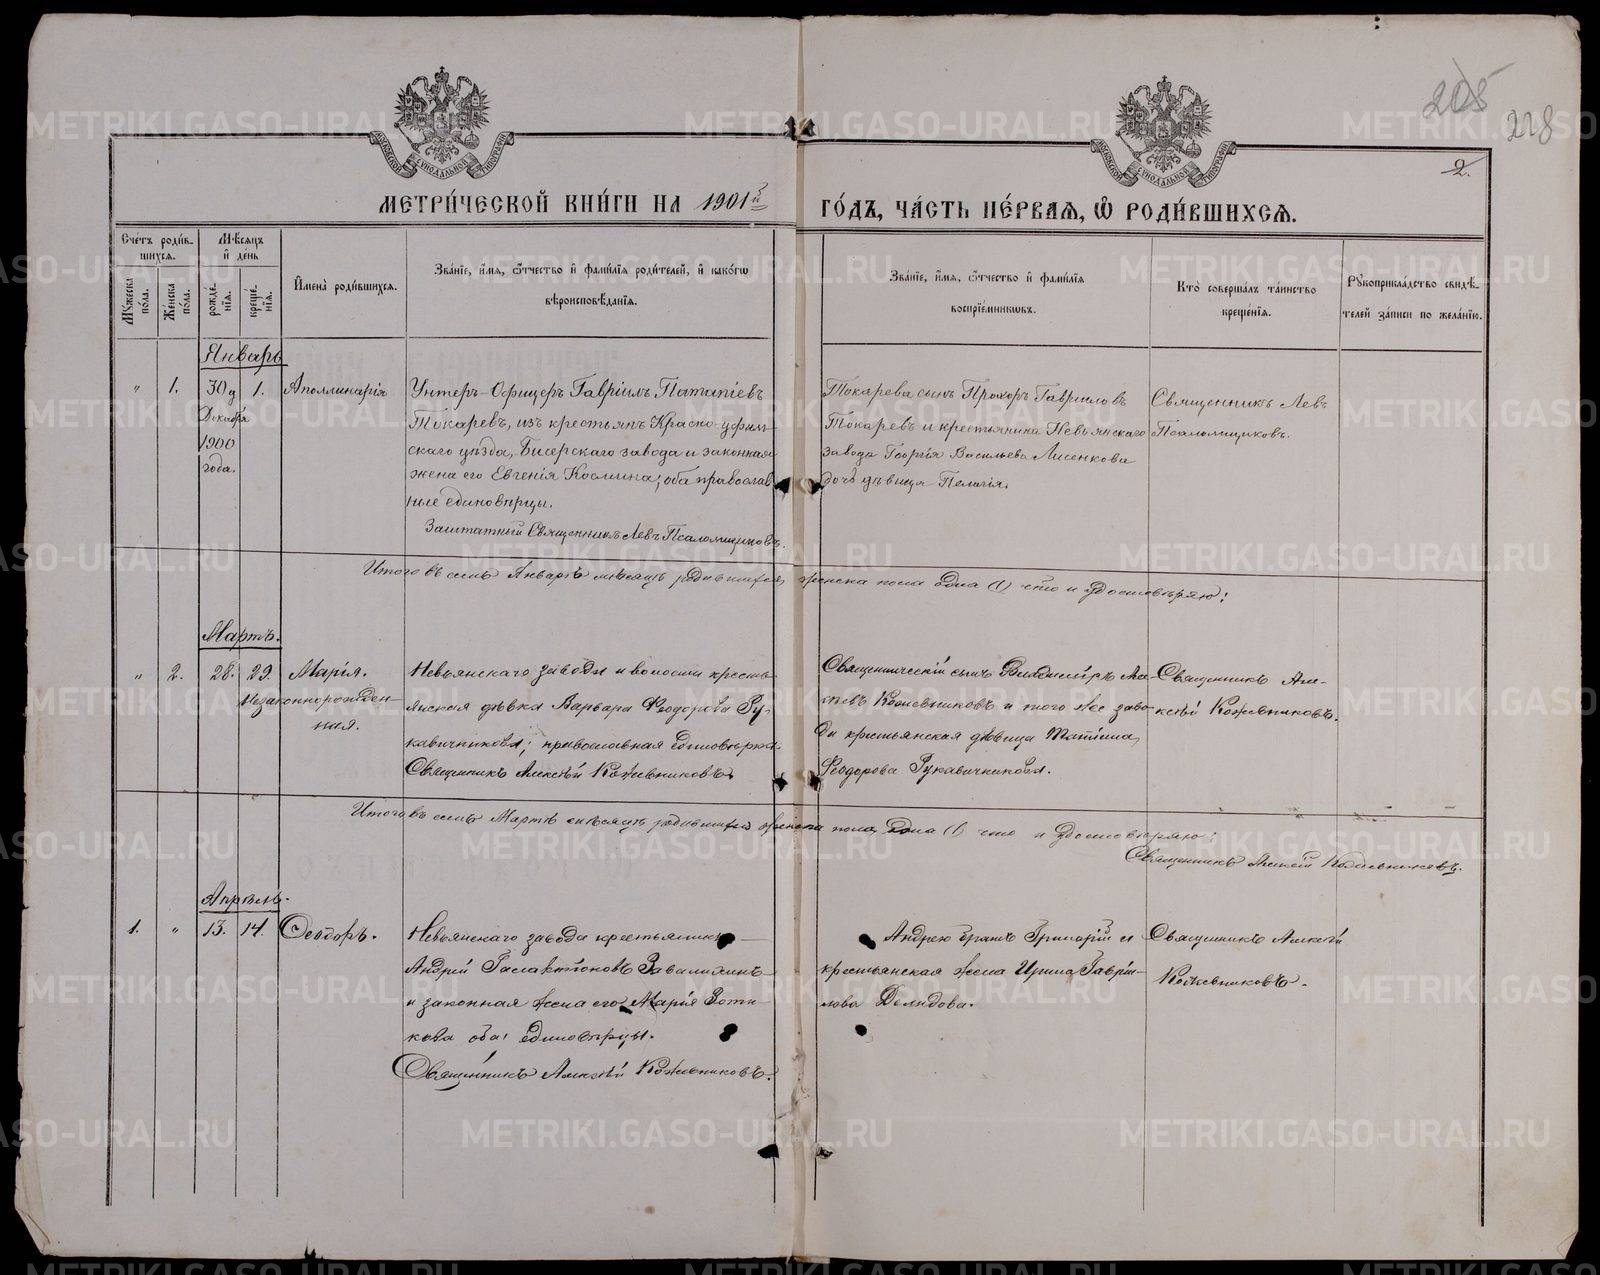 205
228
2.
МОСКОВСКОЙ СѴНОДАЛЬНОЙ ТИПОГРАФІИ
МОСКОВСКОЙ СѴНОДАЛЬНОЙ ТИПОГРАФІИ
МЕТРИ́ЧЕСКОЙ КНИ́ГИ НА 1901й ГО́ДЪ, ЧА́СТЬ ПЕ́РВАѦ, Ѽ РОДИ́ВШИХСѦ.
Сче́тъ роди́в-
шихсѧ.
Мѣ́сѧцъ
и҆ де́нь
Мꙋ́жеска по́ла.
Же́нска по́ла.
рожде́-
нїѧ.
креще́-
нїѧ.
И҆мена̀ роди́вшихсѧ.
Зва́нїе, и҆́мѧ, ѻ҆́тчество и҆ фами́лїѧ роди́телей, и҆ како́гѡ
вѣроисповѣ́данїѧ.
Зва́нїе, и҆́мѧ, ѻ҆́тчество и҆ фами́лїѧ
воспрїе́мникѡвъ.
Кто̀ соверша́лъ та́инство
креще́нїѧ.
Рꙋкоприкла́дство свидѣ́-
телей за́писи по жела́нїю.
Январь
" 1. 30 д 1. Аполлинарія
Декабря
1900
года.
Унтеръ-Офицеръ Гавріилъ Патапіевъ
Токаревъ, изъ крестьянъ Красно-уфим-
скаго уѣзда, Бисерскаго завода и законная
жена его Евгенія Космина, оба православ
ные единовѣрцы.
Заштатный Священникъ Левъ Псаломщиковъ.
Токарева сынъ Прохоръ Гавриловъ
Токаревъ и крестьянина Невьянскаго
завода Георгія Васильева Лисенкова
дочь дѣвица Пелагія.
Священникъ Левъ
Псаломщиковъ.
Итого въ семъ Январѣ мѣсяцѣ родившихся женска пола одна (1) что и удостовѣряю:
Мартъ.
" 2. 28. 29. Марія.
Незаконнорожден-
ная.
Невьянскаго завода и волости кресть-
янская дѣвка Варвара Феодорова Ру-
кавичникова; православная единовѣрка.
Священникъ Алексѣй Кожевниковъ.
Священническій сынъ Владиміръ Але-
ксѣевъ Кожевниковъ и того же заво-
да крестьянская дѣвица Татіана
Феодорова Рукавичникова.
Священникъ Але-
ксѣй Кожевниковъ.
Итого въ семъ Мартѣ мѣсяцѣ родившихся женска пола одна (1) что и удостовѣряю:
Священникъ Алексѣй Кожевниковъ.
Апрѣль.
1. " 13. 14. Ѳеодоръ.
Невьянскаго завода крестьянинъ
Андрей Галактіоновъ Завалишинъ
и законная жена его Марія Зоти-
кова оба единовѣрцы.
Священникъ Алексѣй Кожевниковъ.
Андрею братъ Григорій и
крестьянская жена Ирина Гаврі-
лова Демидова.
Священникъ Алексѣй
Кожевниковъ.
METRIKI.GASO-URAL.RU